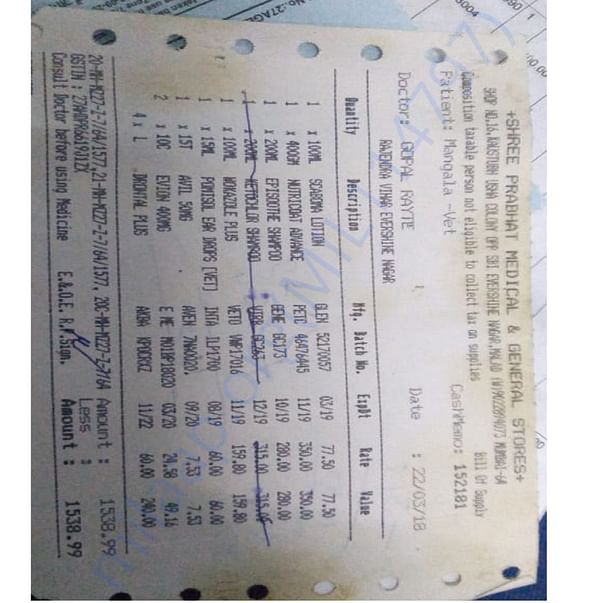 +SHREE PRABHAT MEDICAL & GENERAL STORES+
SHOP NO.16,KAUSTUBH USHA COLONY OPP SBI EVERSHINE NAGAR,MALAD (W) MUMBAI-64
Composition taxable person not eligible to collect tax on supplies
Bill Of Supply
Patient: Mangala -Vet CashMemo: 152181
Doctor: GOPAL RAYTE Date : 22/03/18
RAJENDRA VIHAR EVERSHINE NAGAR
Quantity Description Mfg. Batch No. ExpDt Rate Value
1 x 100ML SCABOMA LOTION GLEN 52170057 03/19 77.50 77.50
1 x 400GM NUTRICOAT ADVANCE PETC 46476445 11/19 350.00 350.00
1 x 200ML EPISOOTHE SHAMPOO GENE GC173 10/19 280.00 280.00
1 x 200ML KETOCHLOR SHAMPOO VIRB GC267 12/19 315.00 315.00
1 x 100ML NOKAZILE PLUS VETO VNP17016 11/19 159.80 159.80
1 x 15ML POMISOL EAR DROPS [VET] INTA ILP1700 08/19 60.00 60.00
1 x 15T AVIL 50MG AVEN 09/20 7.53 7.53
2 x 10C EVION 400MG E ME 03/20 24.58 49.16
4 x L DRONTAL PLUS 11/22 60.00 240.00
20-MH-MZ27-Z-7/64/1577,21-MH-MZ27-Z-7/64/1577, 20C-MH-MZ27-Z-7/64 Amount : 1538.99
GSTIN : Less :
Consult Doctor before using Medicine E.&.O.E. R.P.Sign. Amount : 1538.99